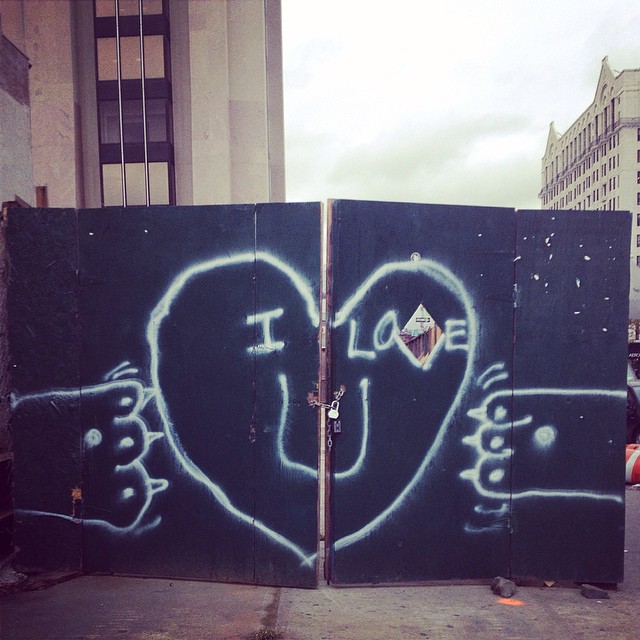 I LOVE
U